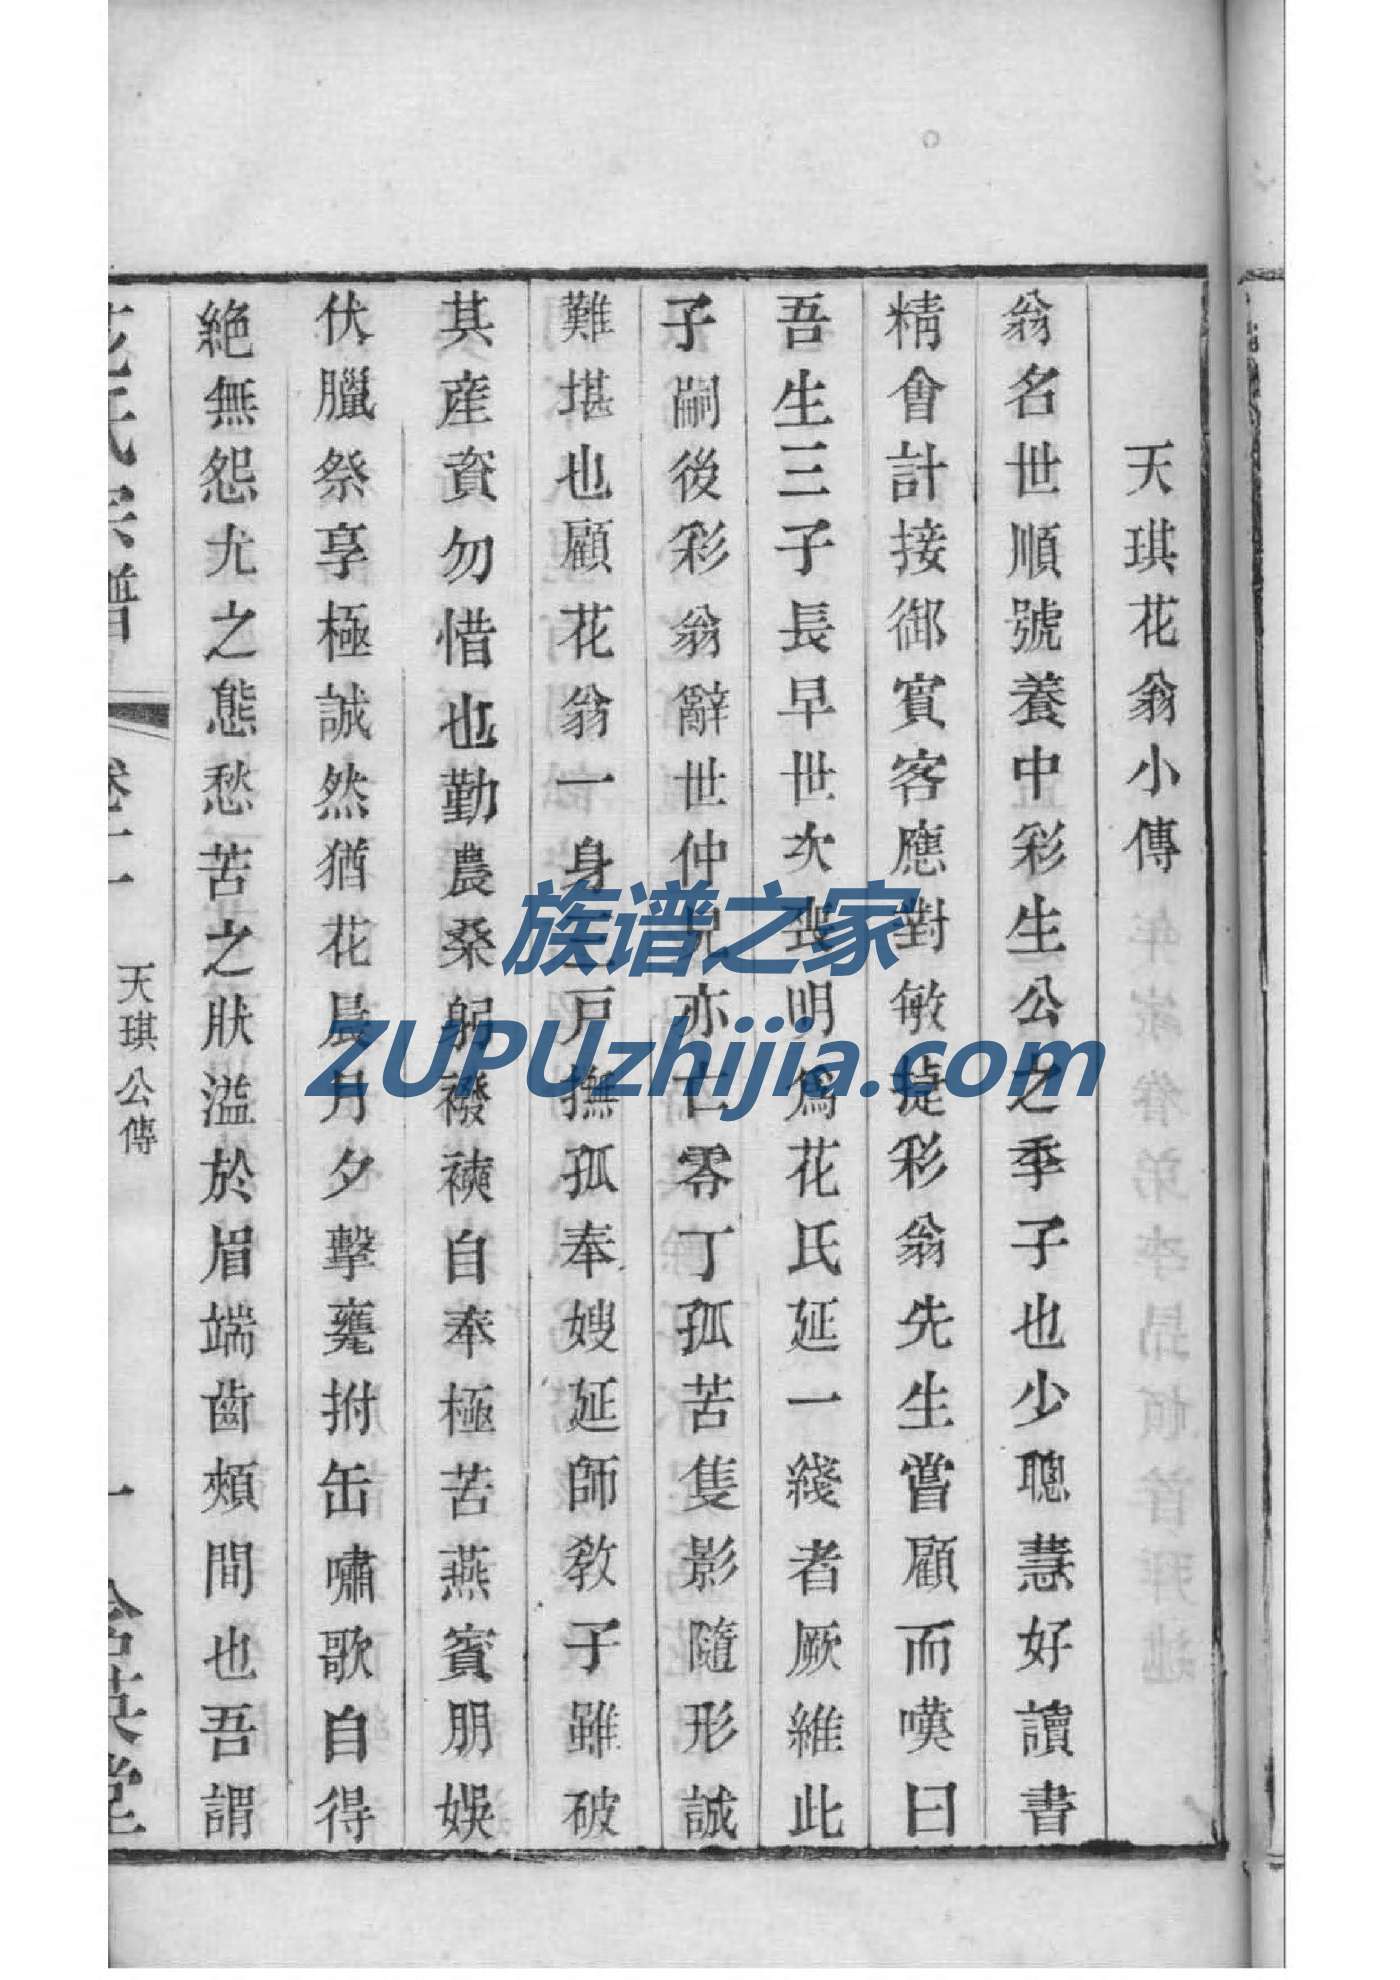 天琪花翁小傳
翁名世順號養中彩生公之季子也少聰慧好讀書
精會計接御賓客應對敏捷彩翁先生嘗顧而嘆曰
吾生三子長早世次喪明為花氏延一綫者厥維此
子嗣後彩翁辭世仲兄亦亡零丁孤苦隻影隨形誠
難堪也顧花翁一身三戸撫孤奉嫂延師敎子雖破
其產資勿惜也勤農桑躬襏襫自奉極苦燕賓朋娛
伏臘祭享極誠然猶花晨月夕擊甕拊缶嘯歌自得
絶無怨尤之態愁苦之狀溢於眉端齒頰間也吾謂
花氏宗譜
卷十一
天琪公傳
一
含英堂
族谱之家
ZUPUzhijia.com